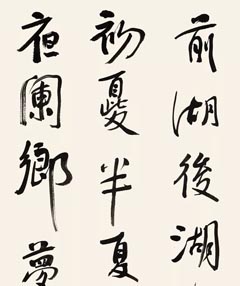 前湖後湖
初夏半夏
夜闌鄉夢